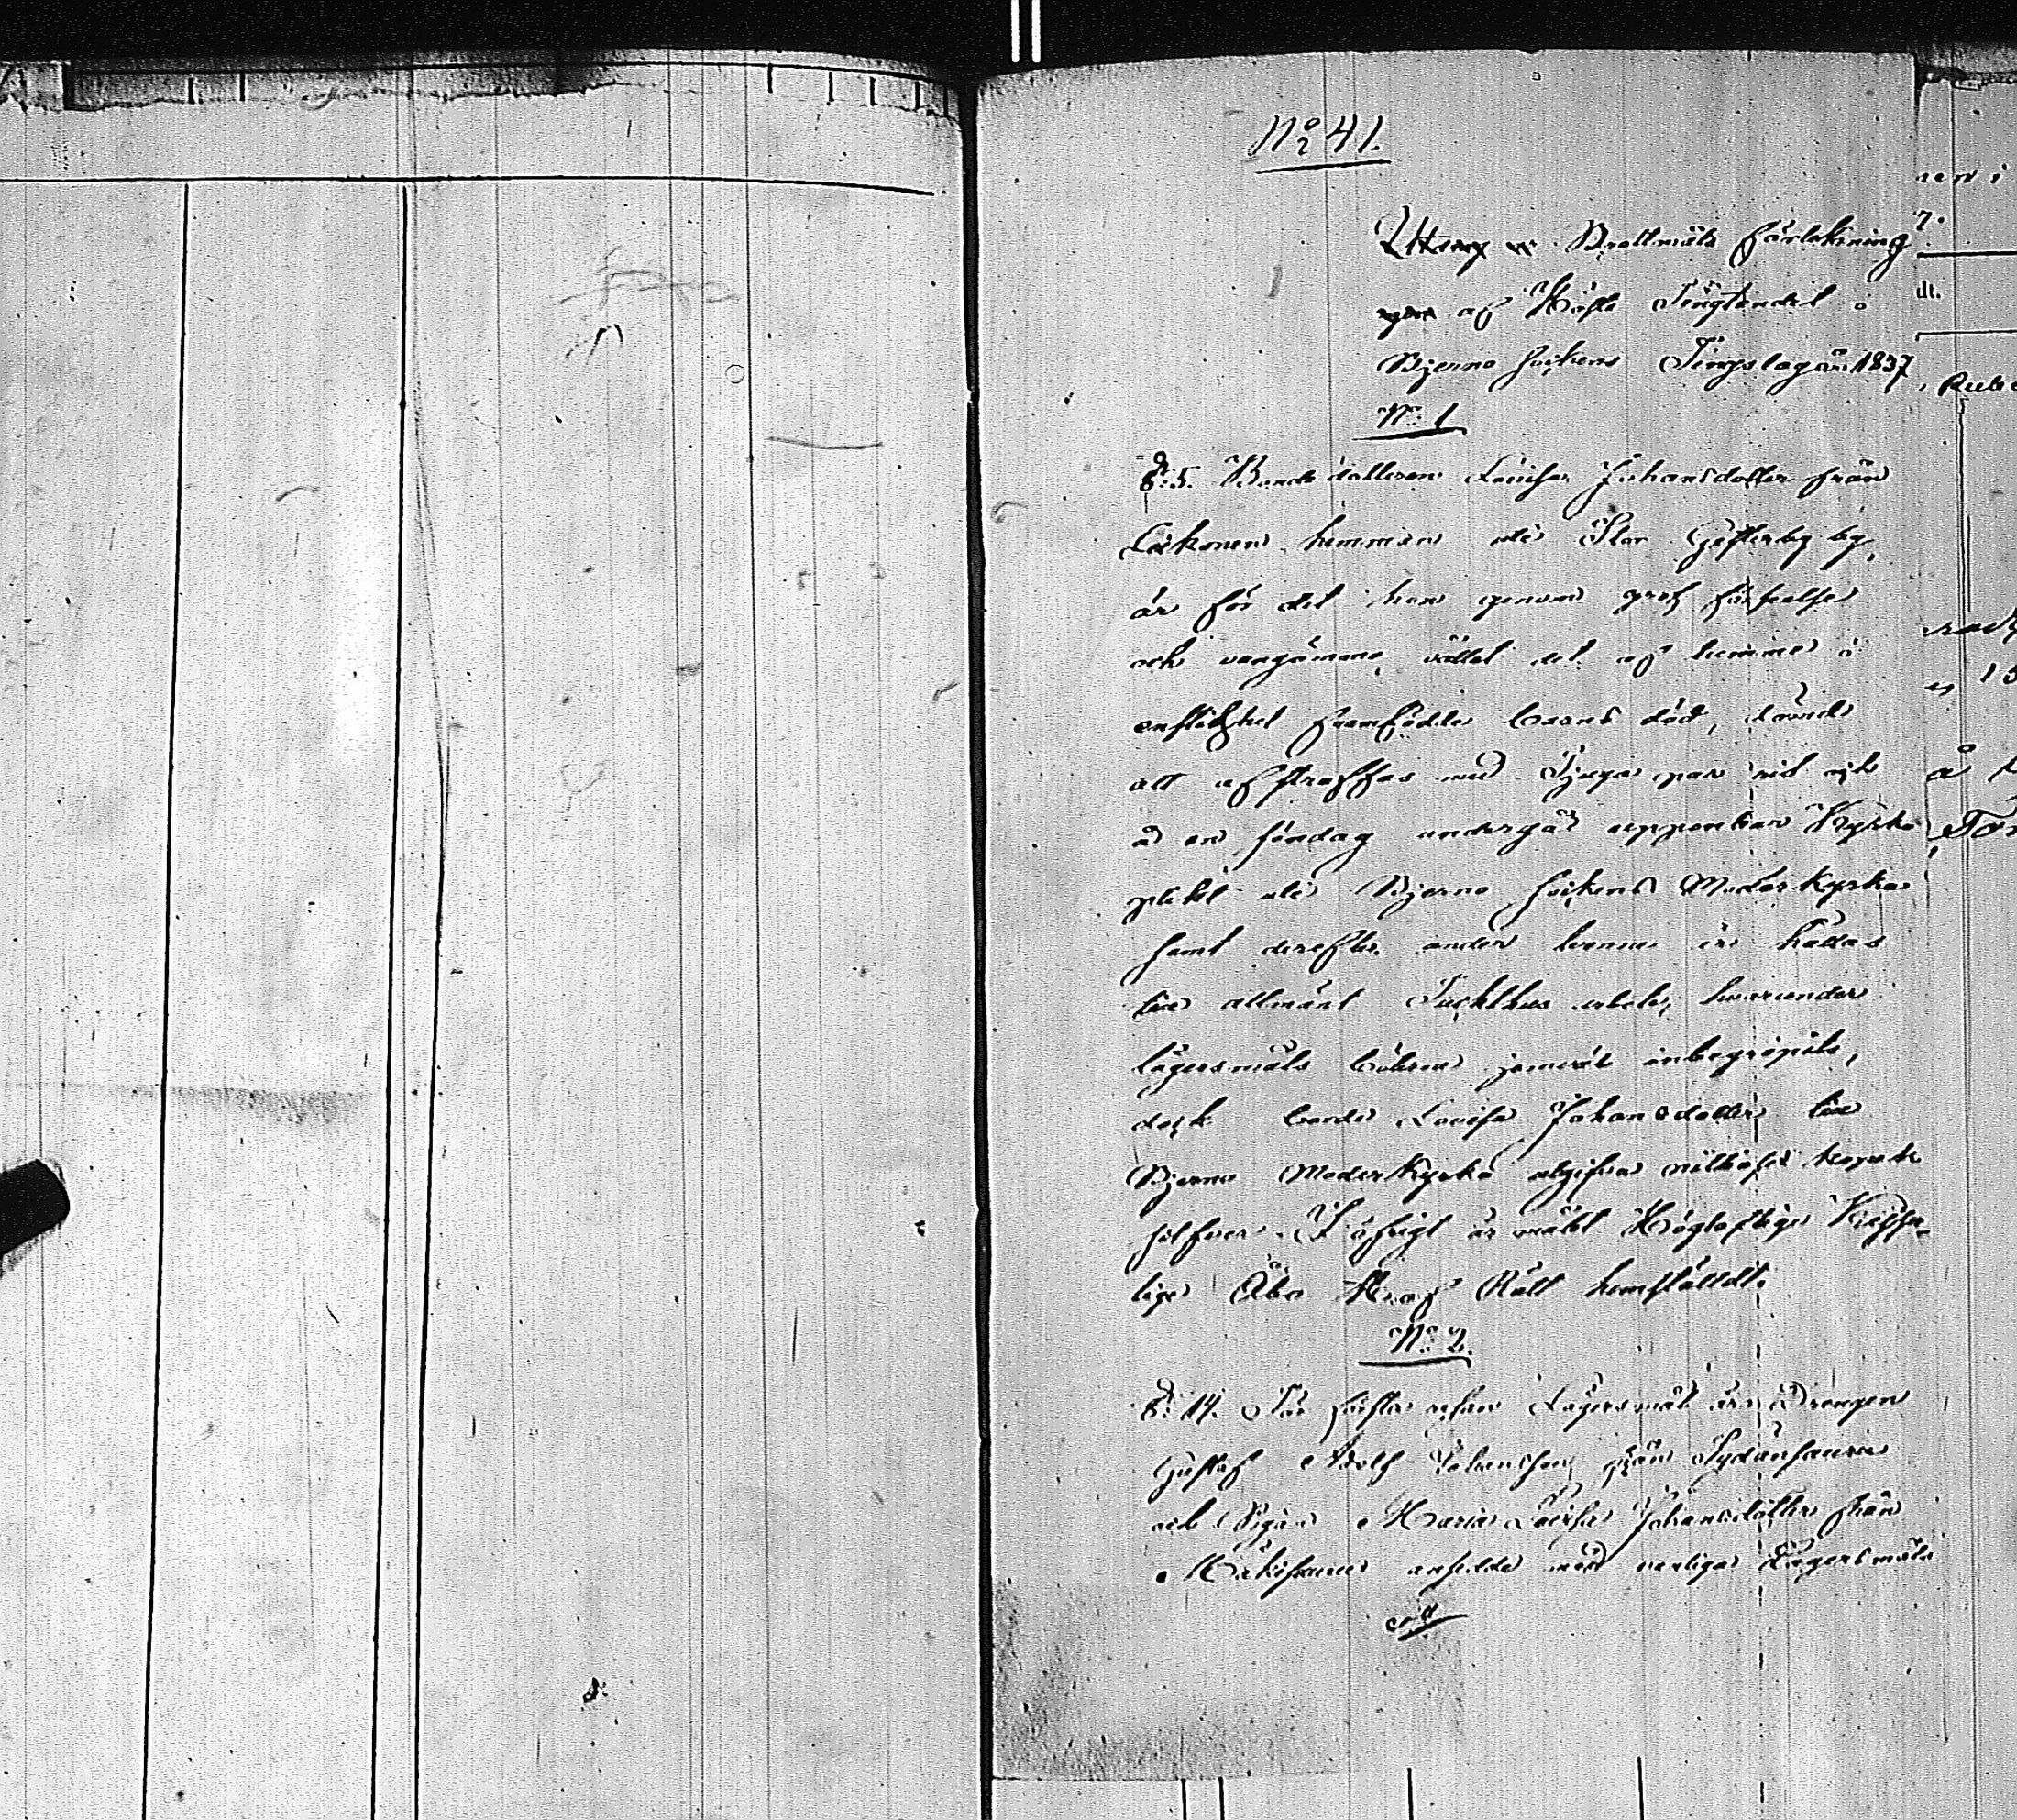 No 41.
Utdrag ur Brottmåls förtekning
af Höste Tingtindet i
Bjerno Sockens Tingslag år 1837
No 1
§. 5. Bonde dottren Lovisa Johansdotter från
hemman uti Stor Gesterby by,
är för det hon genom grof
och vangömmo vållat det af henne i
enslighet framfödda barns död, dömd
att afstraffas med Tjugo par ris och
å en söndag undergå uppenbar Kyrko
plikt uti Bjerno Sockens Moderkyrka
samt derefter under trenne år hållas
till allmänt Tuckthus arbete, hvarunder
lägersmåls böterna jemväl inbegripits,
dock borde Lovisa Johansdotter till
Bjerno Moderkyrka utgifva
silfver. I öfrigt är målet Högloflige Kejser-
lige Åbo Hof Rätt hemstäldt.
No 2.
§. 14. För första resan Lägersmål är Drengen
Gustaf Adolf Johansson från
och Pigan Maria Lovisa Johansdotter från
ansedde med vanliga Lägersmåls